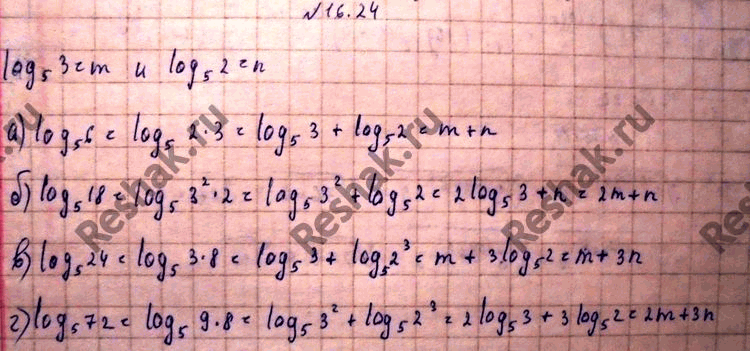 №16.24
log₅3=m и log₅2=n
а) log₅6 = log₅ 2·3 = log₅3 + log₅2 = m+n
б) log₅18 = log₅ 3²·2 = log₅3² + log₅2 = 2log₅3 + n = 2m+n
в) log₅24 = log₅ 3·8 = log₅3 + log₅2³ = m + 3log₅2 = m+3n
г) log₅72 = log₅ 9·8 = log₅3² + log₅2³ = 2log₅3 + 3log₅2 = 2m+3n
Reshak.ru
Reshak.ru
Reshak.ru
Reshak.ru